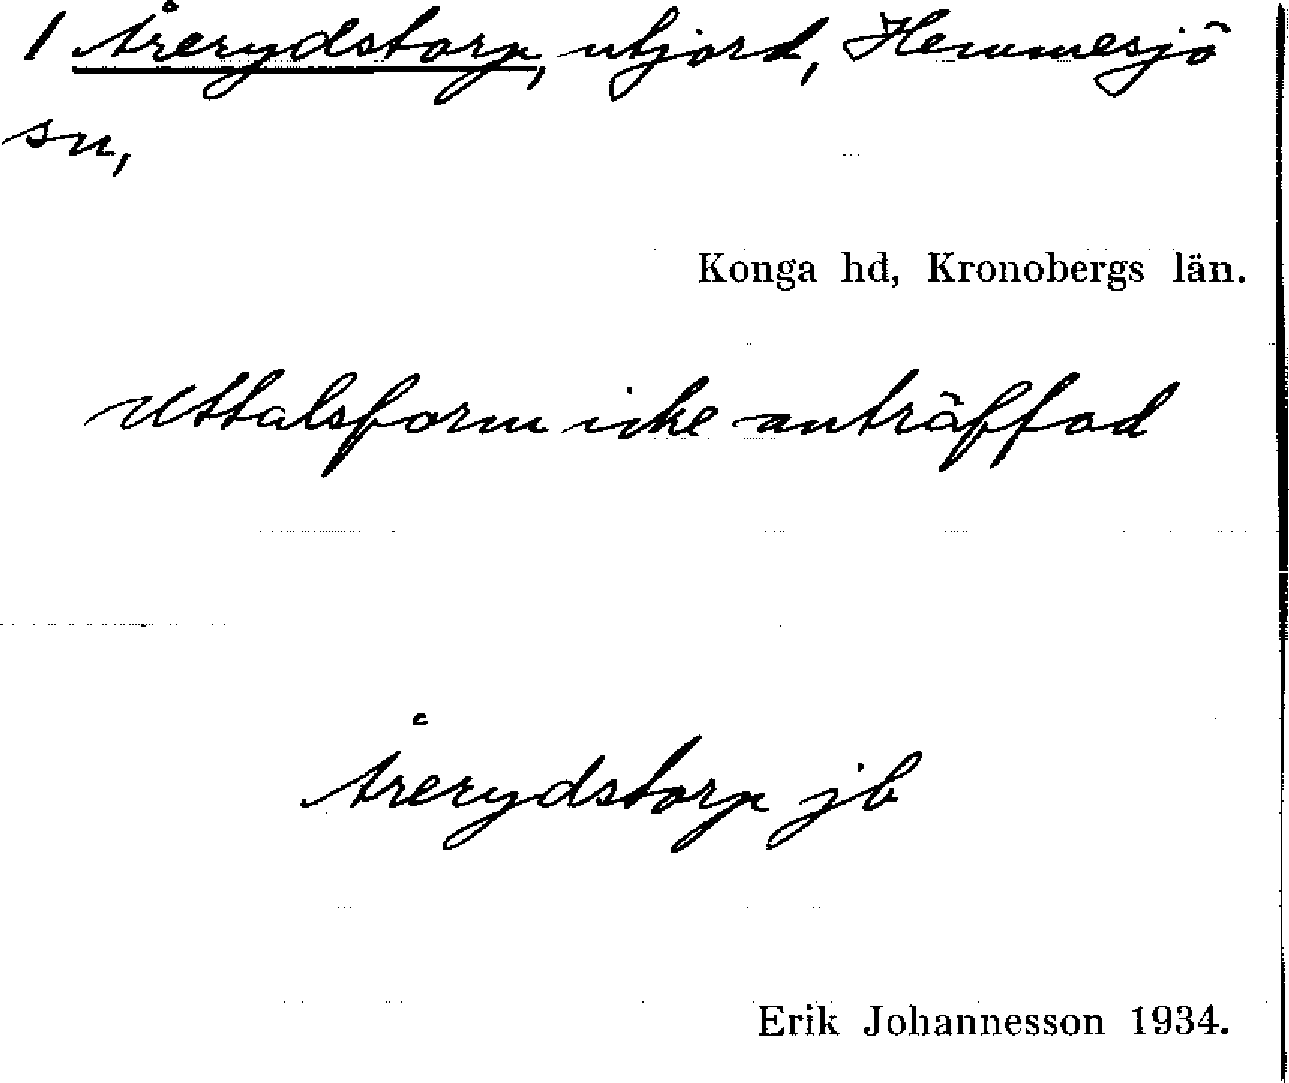 1 Årerydstorp, utjord, Hemmesjö
sn,
Konga hd, Kronobergs län.
Uttalsform icke anträffad
Årerydstorp jb
Erik Johannesson 1934.